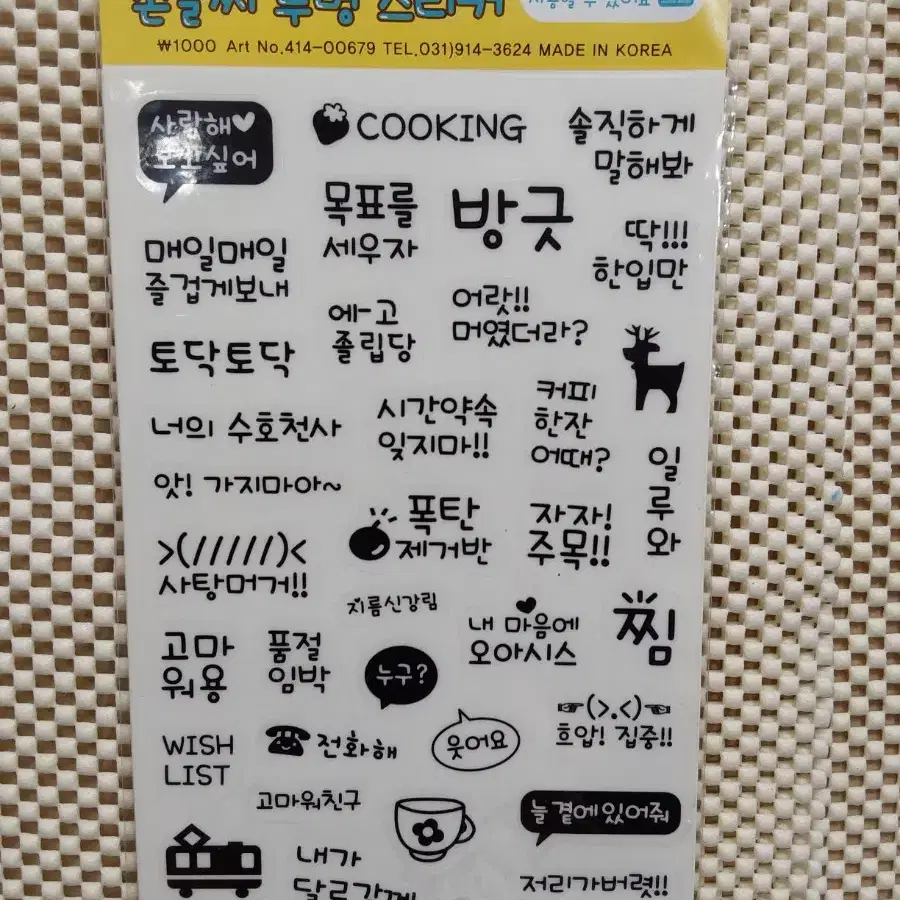 손글씨 투명 스티커
사용할 수 있어요
₩1000 Art No.414-00679 TEL.031)914-3624 MADE IN KOREA
사랑해♥
보고싶어
COOKING
솔직하게
말해봐
목표를
세우자
방긋
딱!!!
한입만
매일매일
즐겁게보내
에-고
졸립당
어랏!!
머였더라?
토닥토닥
너의 수호천사
시간약속
잊지마!!
커피
한잔
어때?
일루와
앗! 가지마아~
폭탄
제거반
자자!
주목!!
>(/////)<
사탕머거!!
지름신강림
내 마음에
오아시스
찜
고마
워용
품절
임박
누구?
☞(>.<)☜
흐압! 집중!!
WISH
LIST
전화해
웃어요
고마워친구
늘 곁에있어줘
내가
달르가께
저리가버렷!!